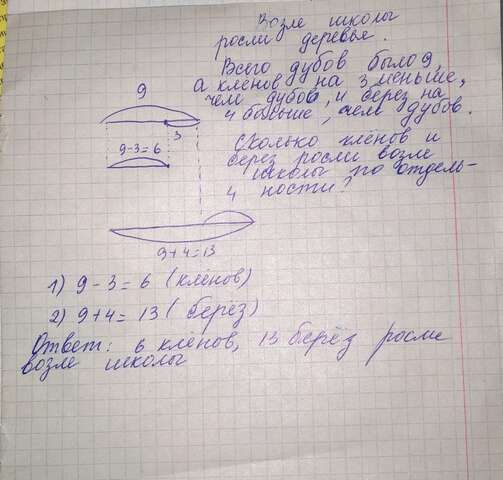 Возле школы
росли деревье.
Всего дубов было 9,
а клёнов на 3 меньше,
чем дубов, и берез на
4 больше, чем дубов.
Сколько клёнов и
берез росли возле
школы по отдель-
ности?
9
3
9-3=6
4
9+4=13
1) 9-3=6 (клёнов)
2) 9+4=13 (берёз)
Ответ: 6 клёнов, 13 берёз росли
возле школы